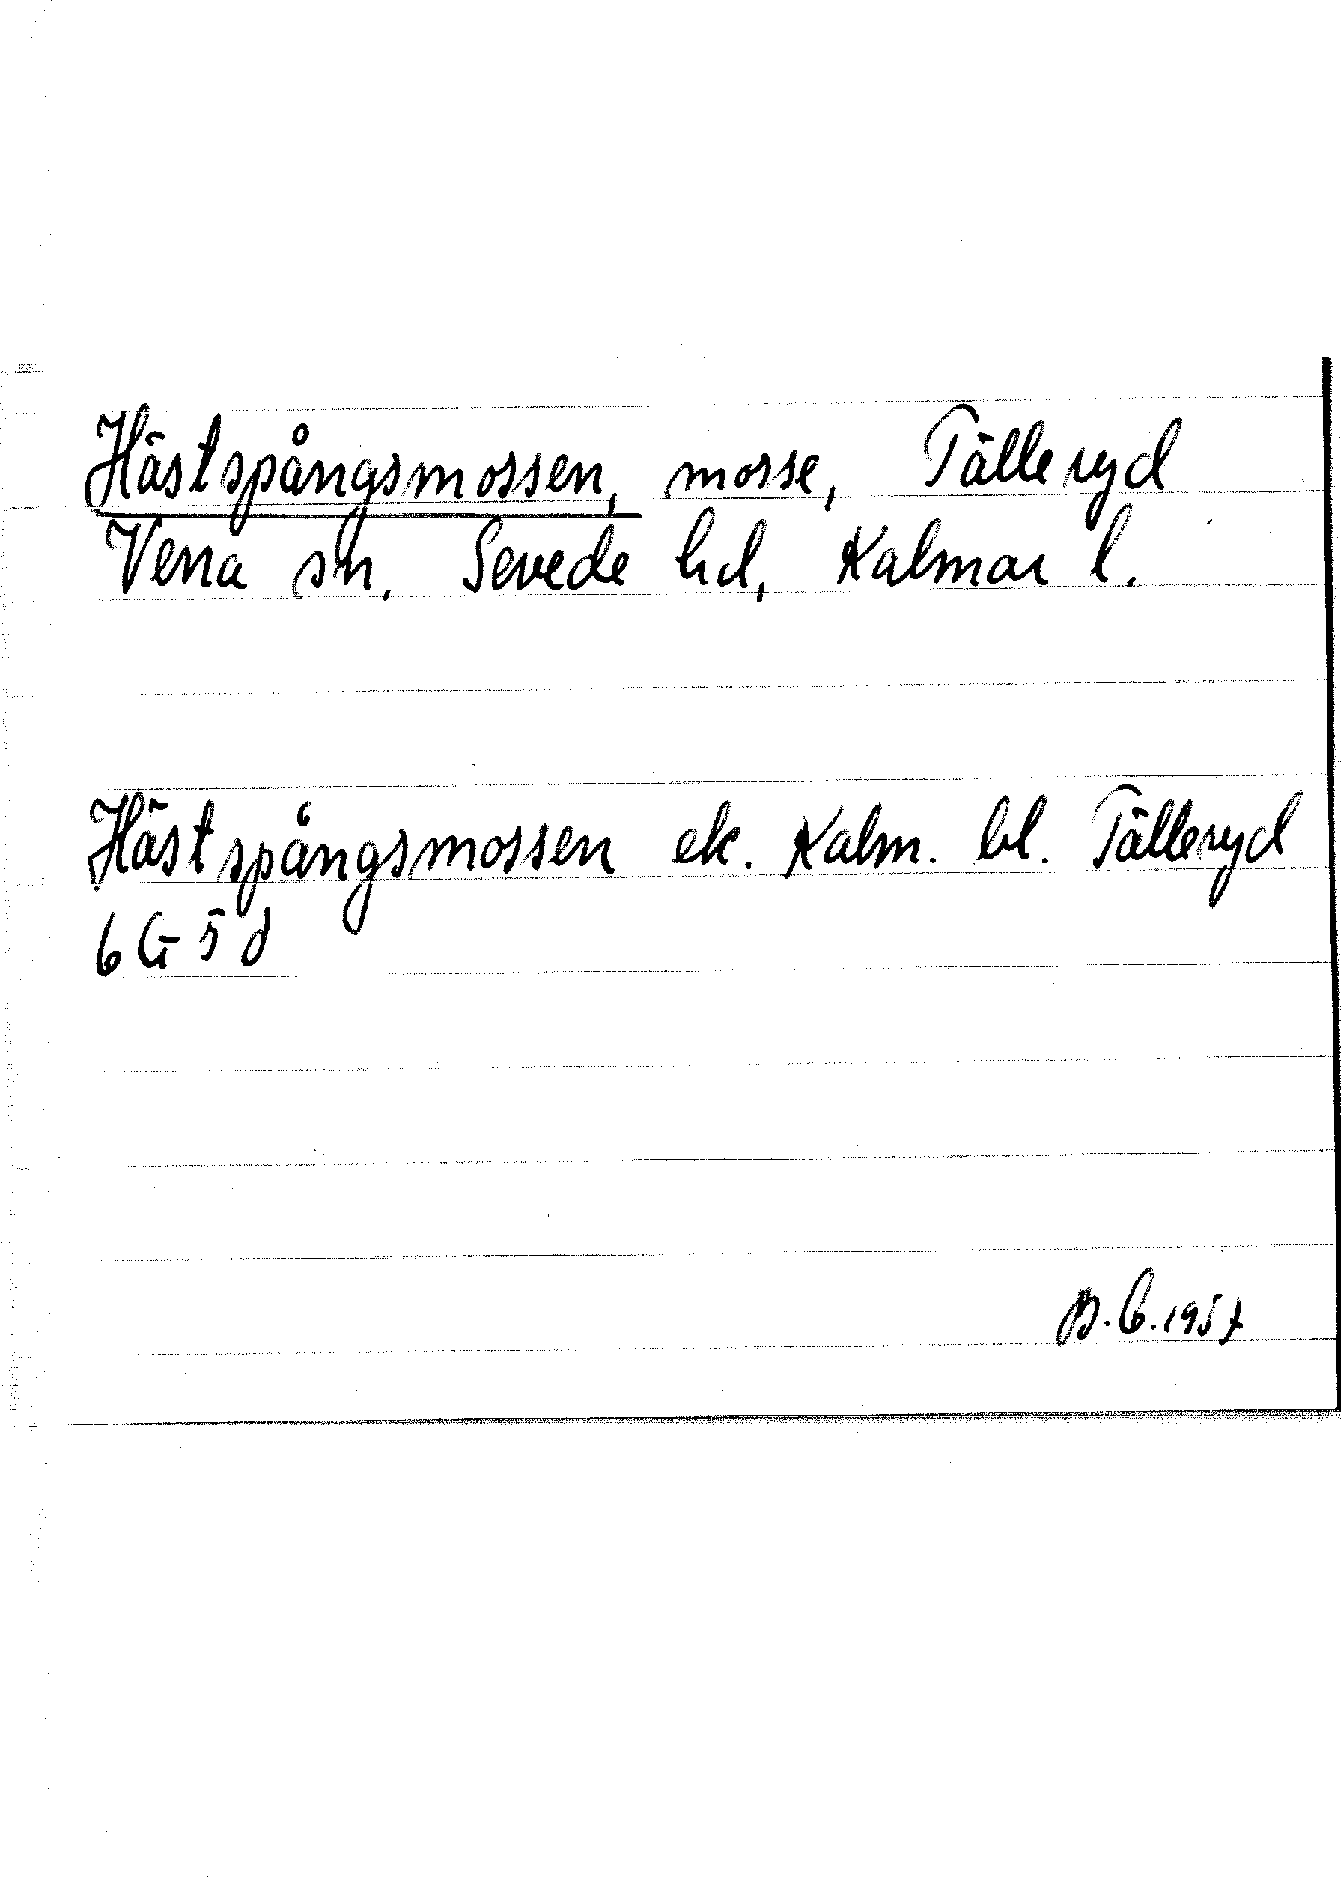 Hästspångsmossen, mosse, Tälleryd
Vena sn, Sevede hd, Kalmar l.
Hästspångsmossen ek. Kalm. bl. Tälleryd
6 G 5 d
B.C. 1957